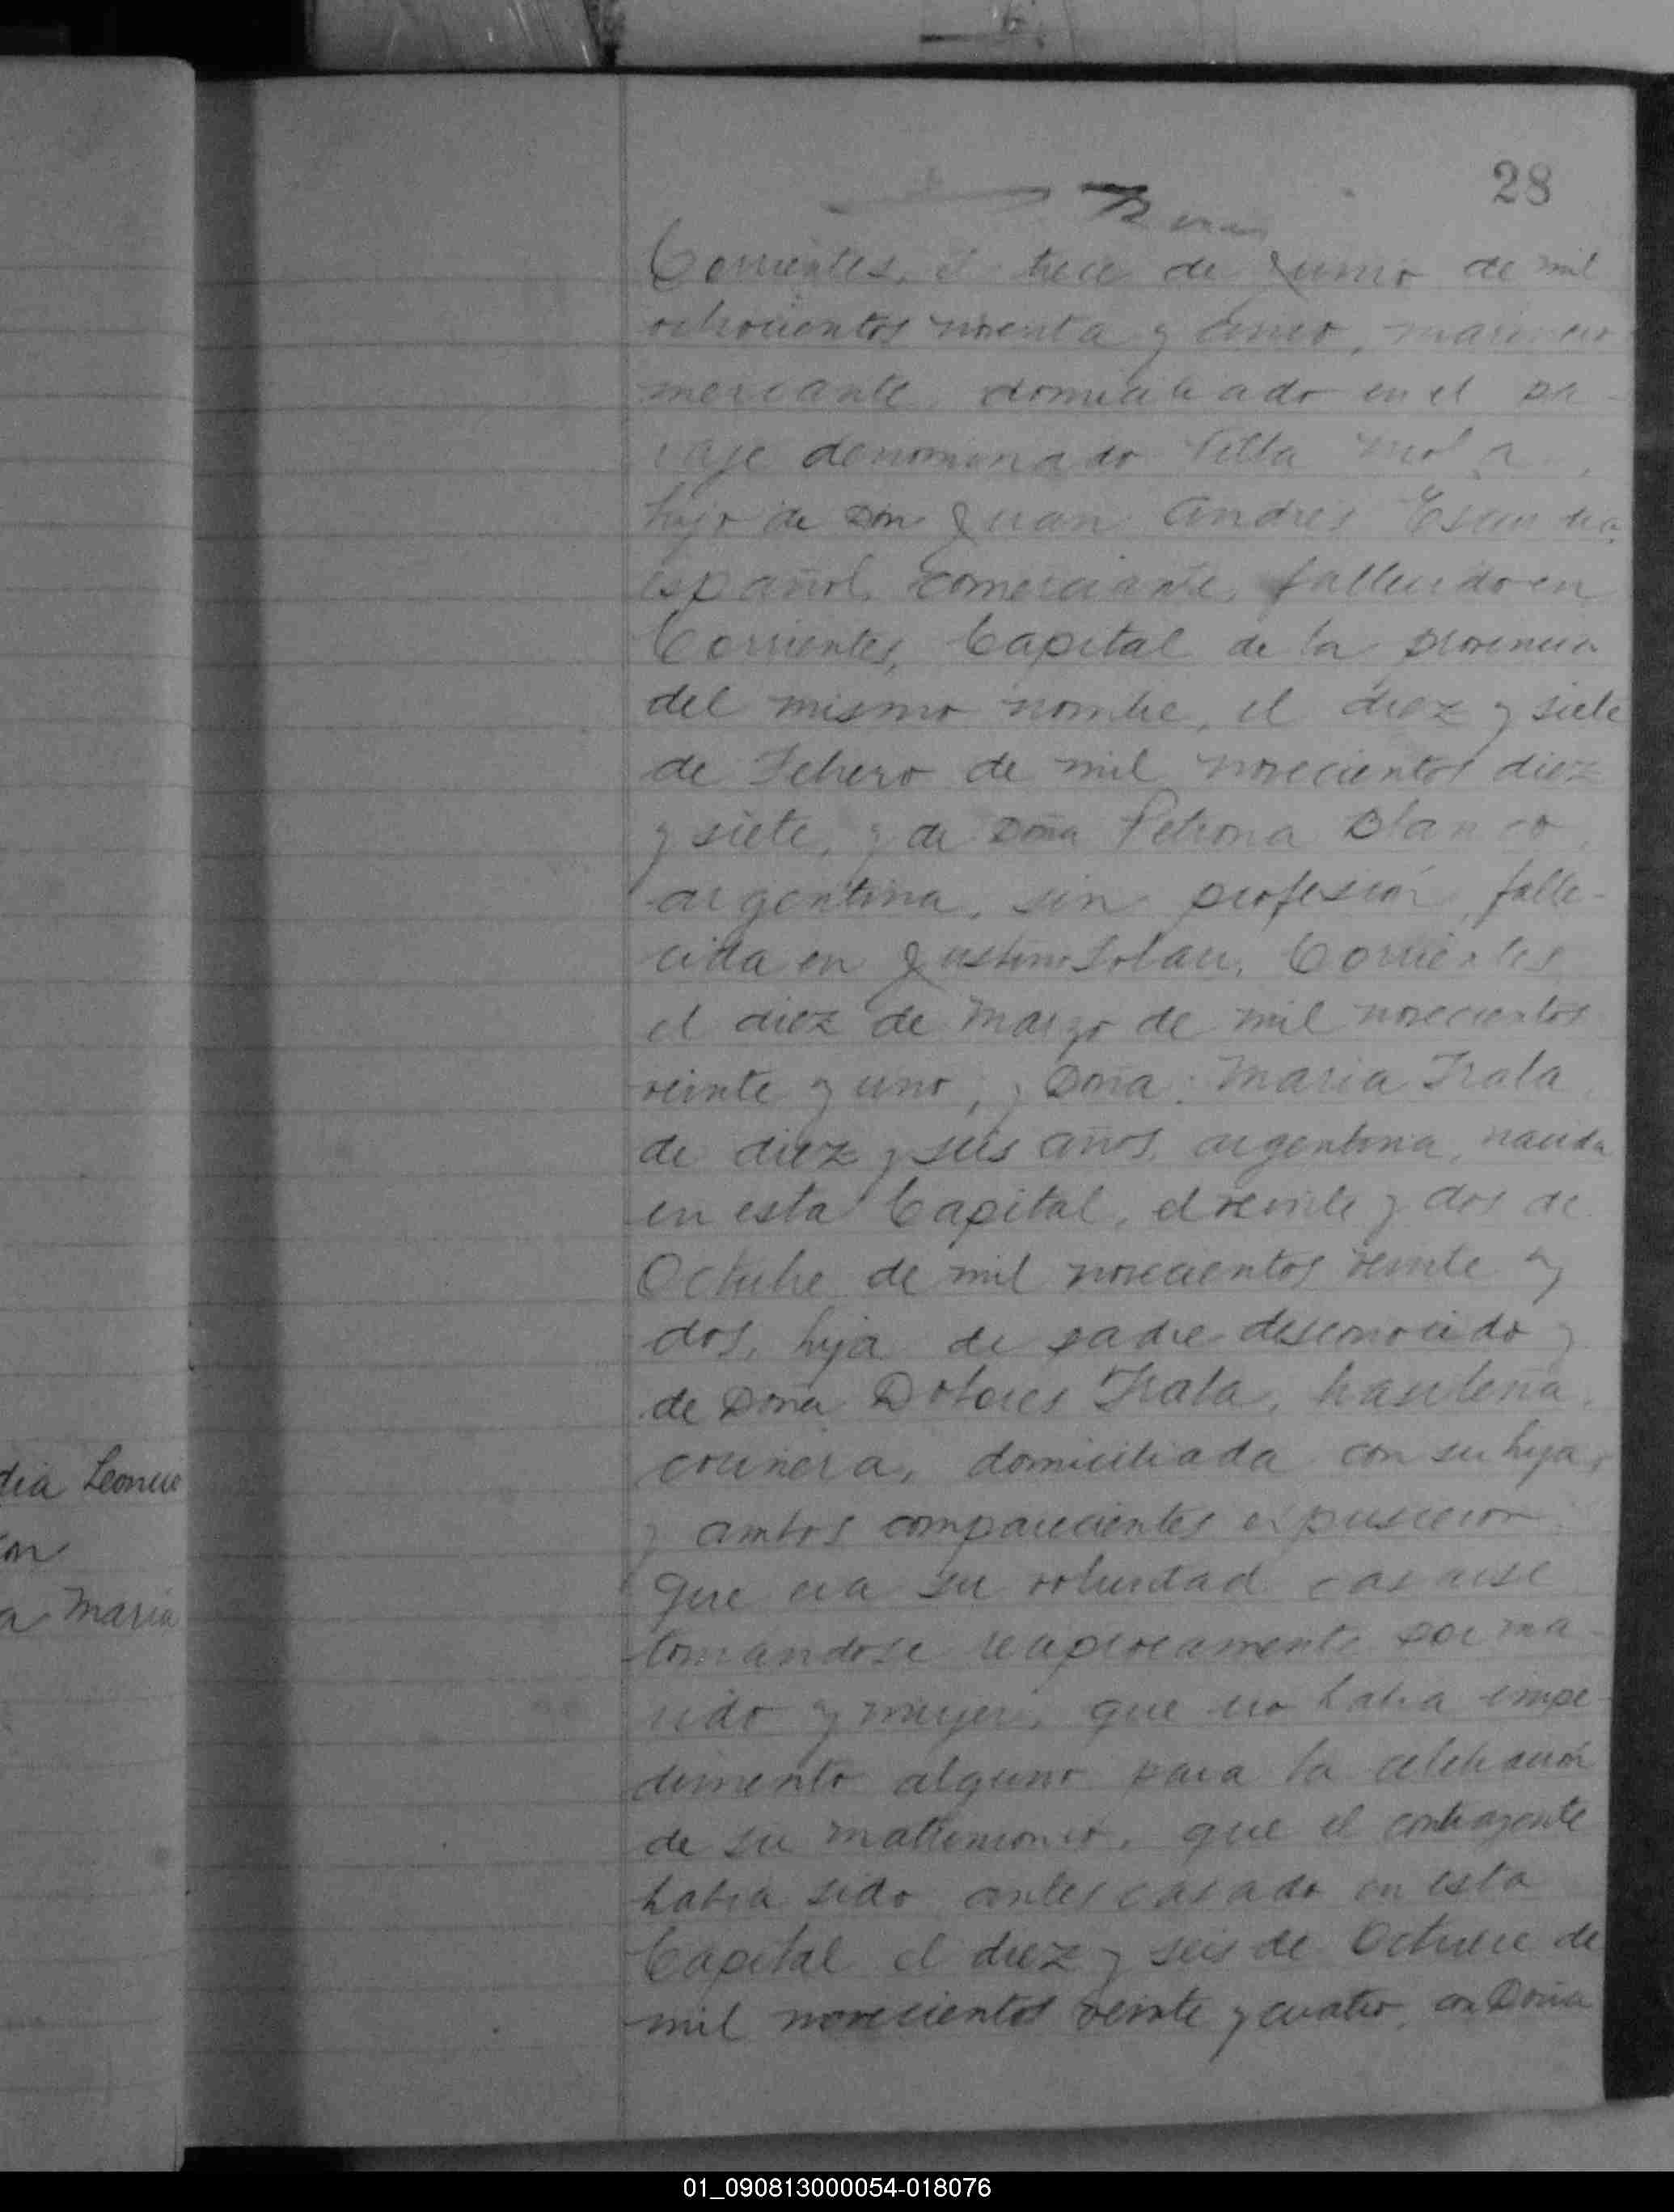 28
Corrientes, el trece de Junio de mil
ochocientos noventa y cinco, marinero
mercante, domiciliado en el pa-
raje denominado Villa
hijo de Don Juan Andrés
español, comerciante, fallecido en
Corrientes, Capital de la provincia
del mismo nombre, el diez y siete
de Febrero de mil novecientos diez
y siete, y de Doña Petrona Blanco,
argentina, sin profesión, falle-
cida en Justino Solari, Corrientes
el diez de Marzo de mil novecientos
veinte y uno, y Doña Maria Irala
de diez y seis años, argentina, nacida
en esta Capital, el veinte y dos de
Octubre de mil novecientos veinte y
dos, hija de padre desconocido y
de Doña Dolores Irala, brasileña,
cocinera, domiciliada con su hija,
y ambos comparecientes expusieron
Que era su voluntad casarse
tomándose reciprocamente por ma-
rido y mujer, que no habia impe-
dimento alguno para la celebración
de su matrimonio, que el contrayente
habia sido antes casado en esta
Capital el diez y seis de Octubre de
mil novecientos veinte y cuatro, con Doña
dia Leonor
on
a Maria
01_090813000054-018076